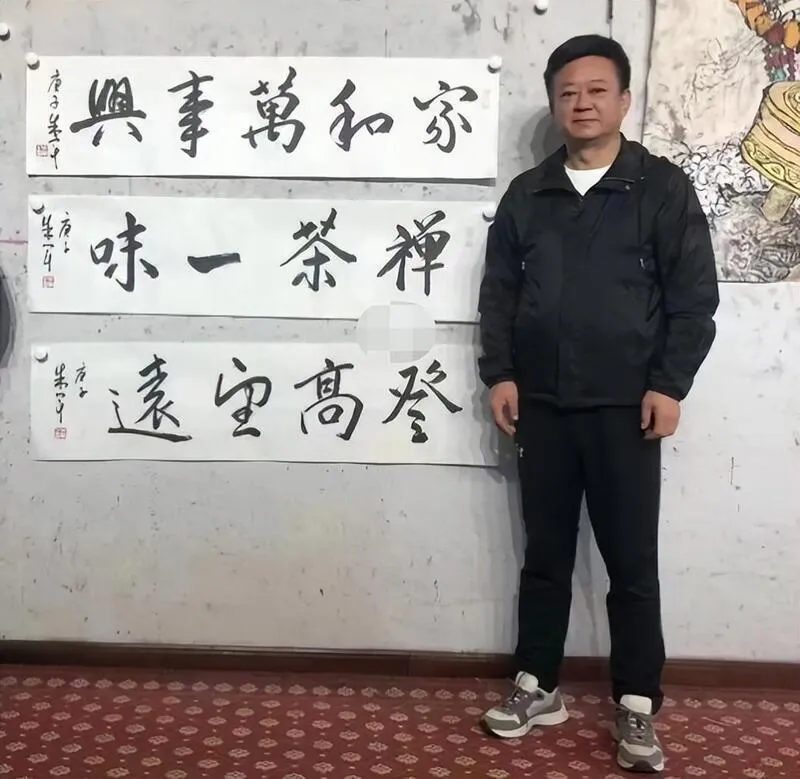 家和萬事興
庚子 朱军
禅茶一味
庚子 朱军
登高望遠
庚子 朱军